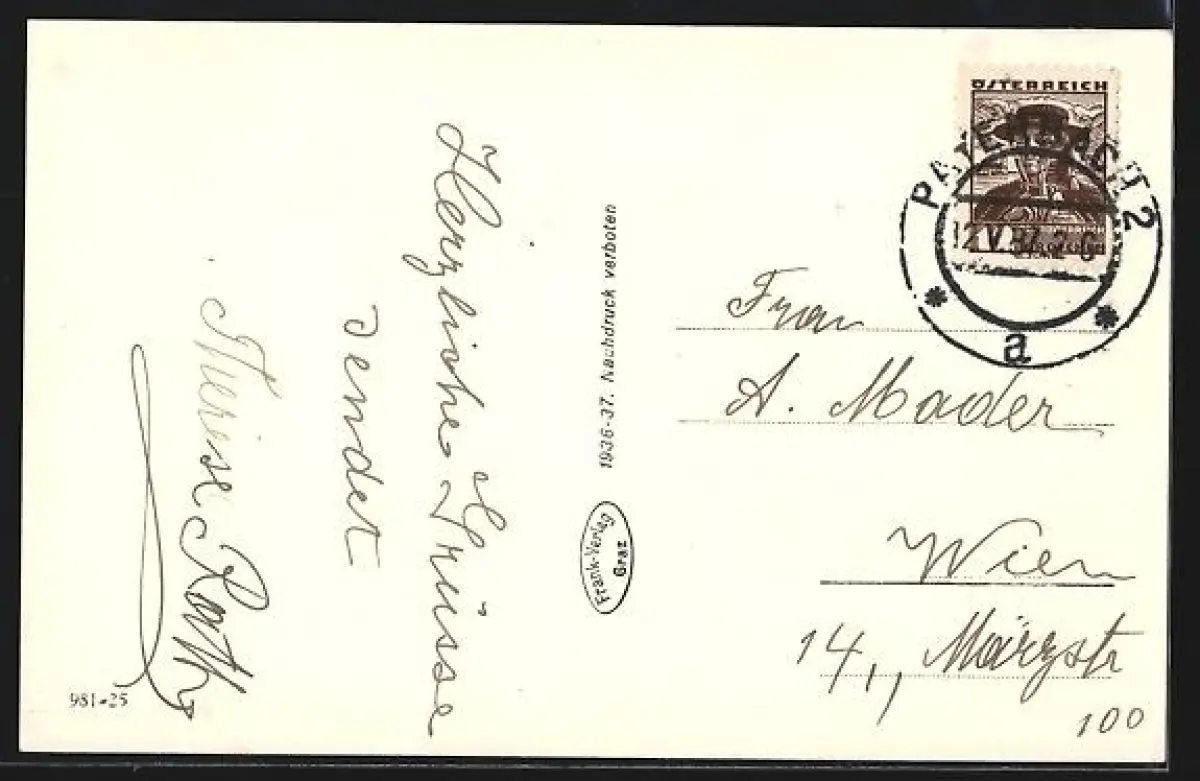 ÖSTERREICH
PAYERBACH 2
12.V.37
a
Herzliche Grüsse
sendet
Therese Rath
1936-37. Nachdruck verboten
Frank-Verlag
Graz
981-25
Frau
A. Mader
Wien
14., Märzstr
100